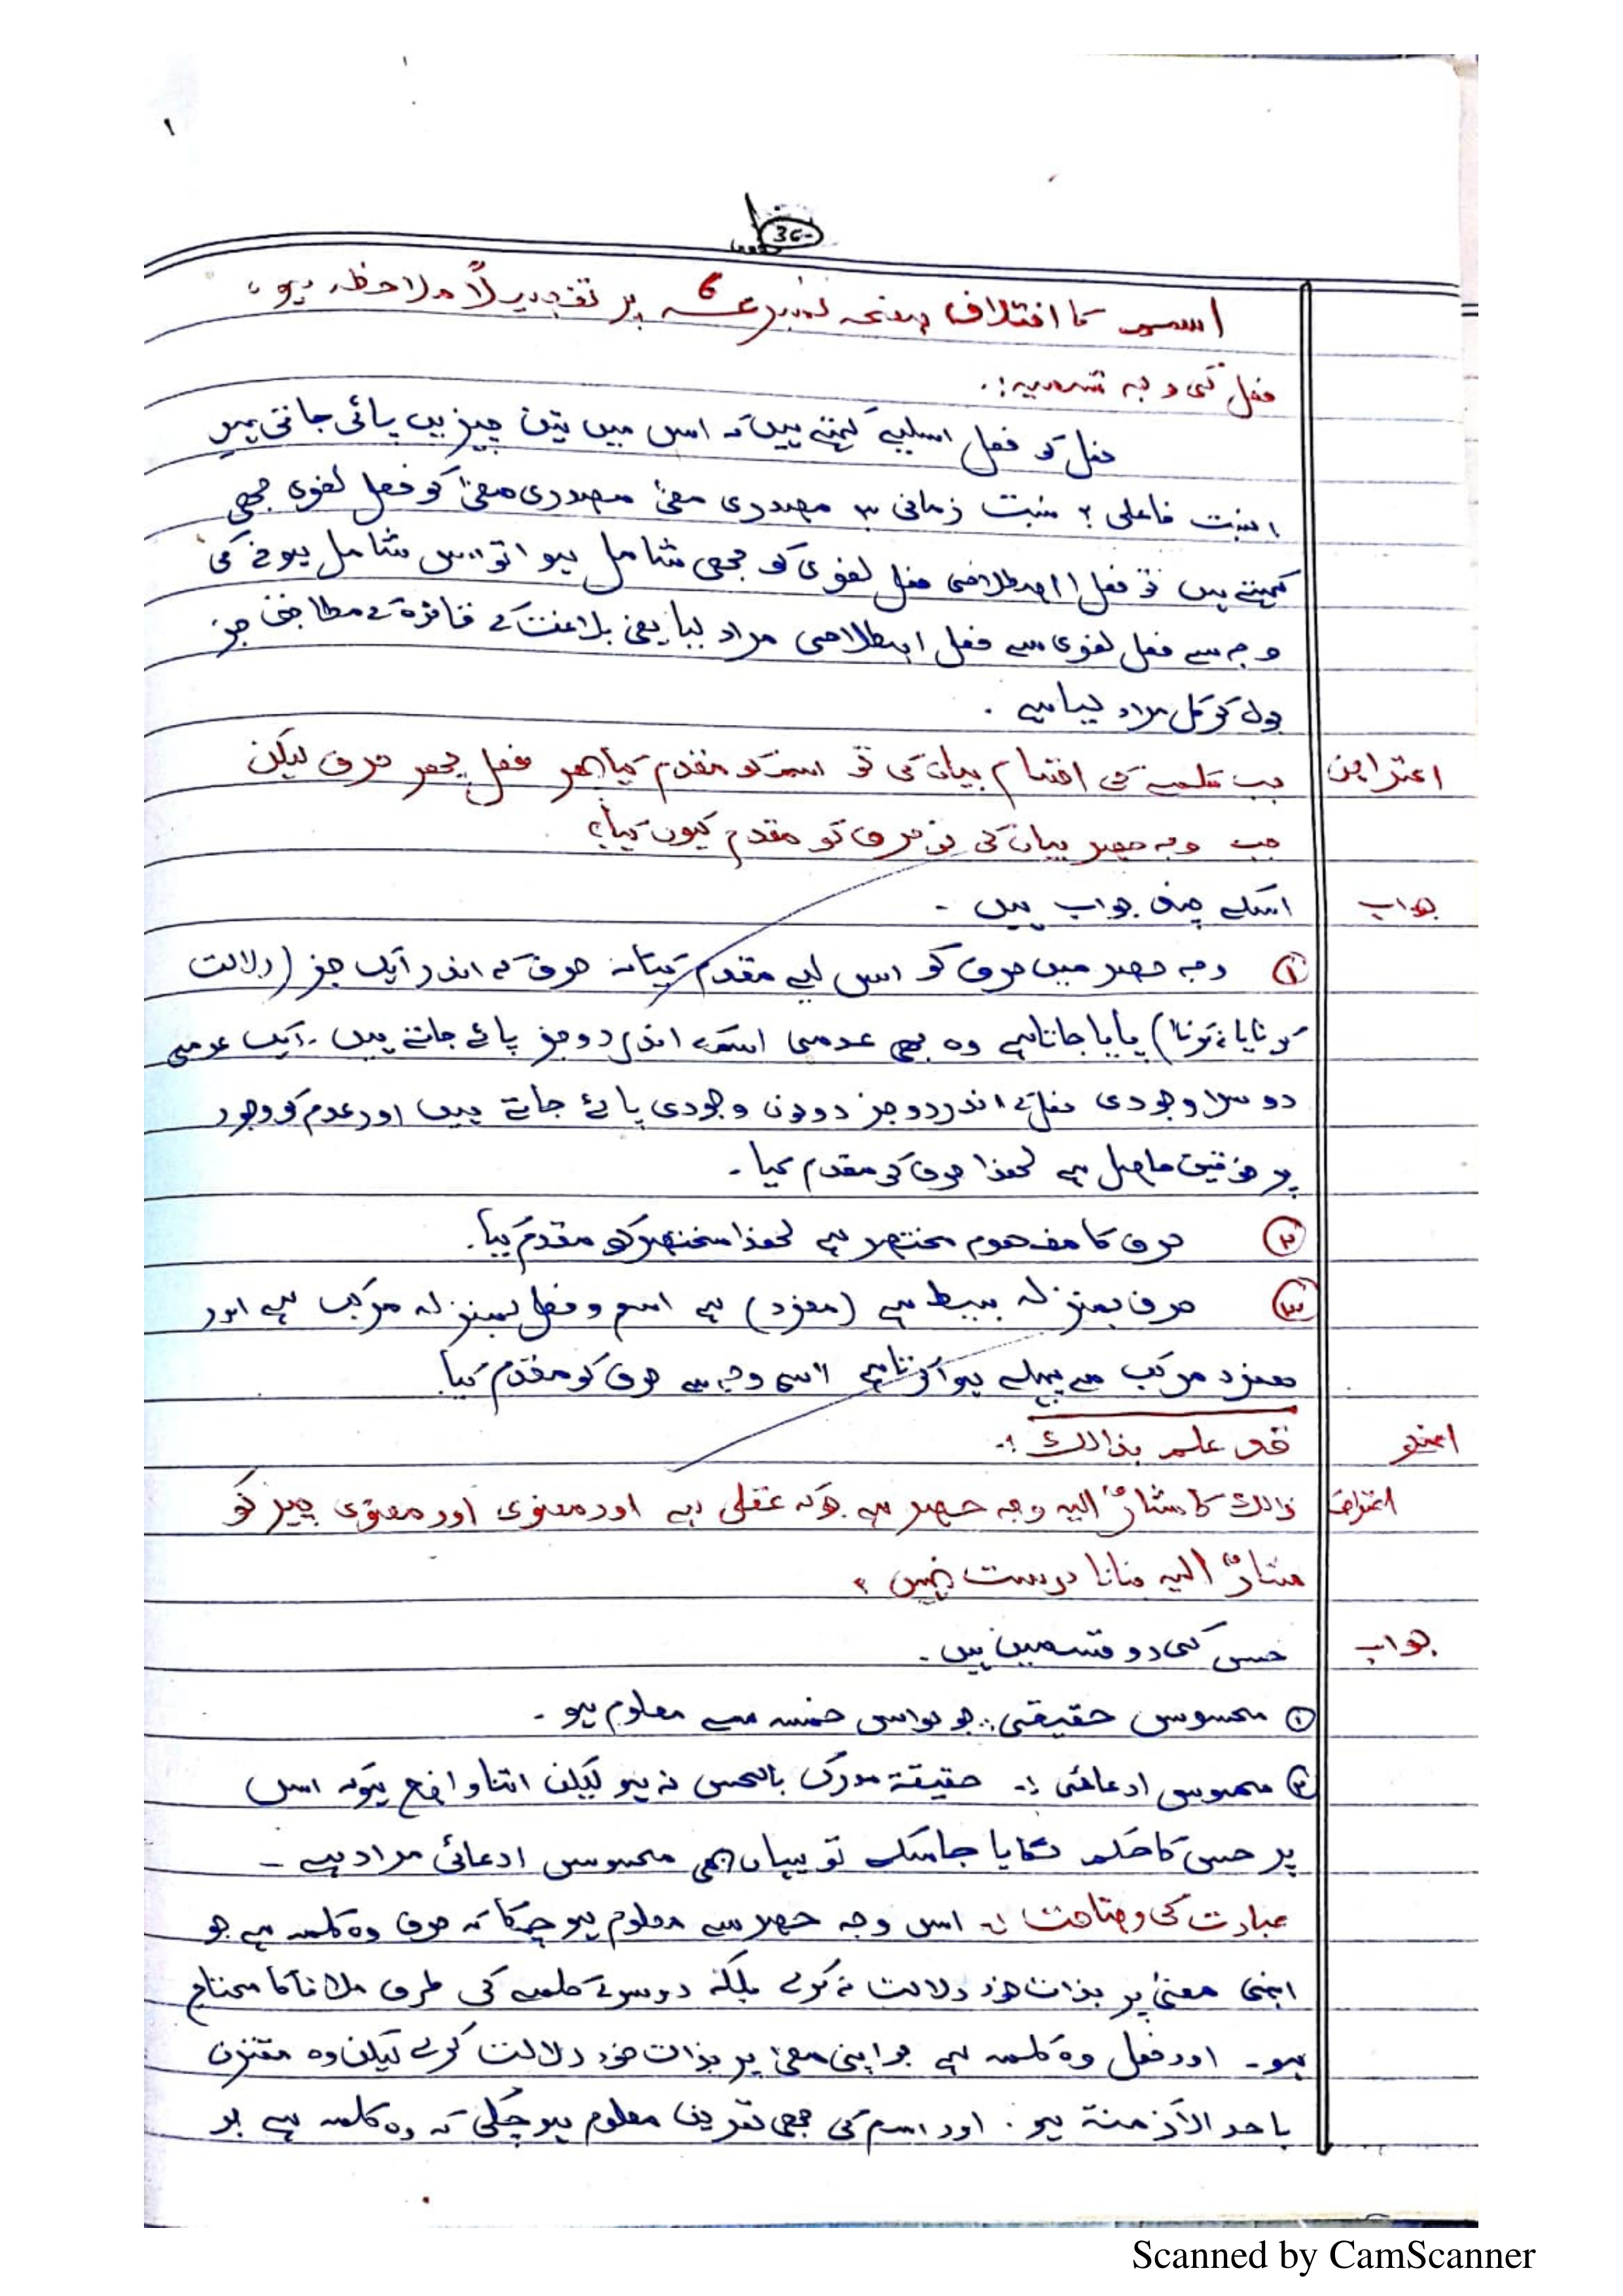 ۱
36
اسم کا اختلاف صفحہ نمبر ۶ پر تفصیلاً ملاحظہ ہو،
فعل کی وجہ تسمیہ:.
فعل کو فعل اسلیے کہتے ہیں کہ اس میں تین چیزیں پائی جاتی ہیں
۱ نسبت فاعلی ۲ نسبت زمانی ۳ مصدری معنیٰ مصدری معنیٰ کو فعل لغوی بھی
کہتے ہیں تو فعل اصطلاحی فعل لغوی کو بھی شامل ہوا تو اس شامل ہونے کی
وجہ سے فعل لغوی سے فعل اصطلاحی مراد لیا یعنی بلاغت کے قائدہ کے مطابق جز
بول کر کل مراد لیا ہے .
اعتراض جب کلمے کی اقسام بیان کی تو اسم کو مقدم کیا پھر فعل پھر حرف لیکن
جب وجہ حصر بیان کی تو حرف کو مقدم کیوں کیا؟
جواب اسکے چند جواب ہیں ۔
① وجہ حصر میں حرف کو اس لیے مقدم کیا کہ حرف کے اندر ایک جز (دلالت
کرنا یا نہ کرنا) پایا جاتا ہے وہ بھی عدمی اسم کے اندر دو جز پائے جاتے ہیں ۔ ایک عدمی
دوسرا وجودی فعل کے اندر دو جز دونوں وجودی پائے جاتے ہیں اور عدم کو وجود
پر فوقیت حاصل ہے لھذا حرف کو مقدم کیا ۔
② حرف کا مفھوم مختصر ہے لھذا مختصر کو مقدم کیا.
③ حرف بمنزلہ بسیط ہے (مفرد) ہے اسم و فعل بمنزلہ مرکب ہے اور
مفرد مرکب سے پہلے ہوا کرتا ہے اسی وجہ سے حرف کو مقدم کیا
قد علم بذالک :.
اعتراض ذالک کا مشارٌ الیہ وجہ حصر ہے جو کہ عقلی ہے اور معنوی اور معنوی چیز کو
مشارٌ الیہ بنانا درست نہیں ؟
جواب حسی کی دو قسمیں ہیں .
① محسوس حقیقی :. جو حواس خمسہ سے معلوم ہو ۔
② محسوس ادعائی :. حقیقۃ مدرک بالحس نہ ہو لیکن اتنا واضح ہو کہ اس
پر حسی کا حکم لگایا جا سکے تو یہاں بھی محسوس ادعائی مراد ہے ۔
عبارت کی وضاحت :. اس وجہ حصر سے معلوم ہو چکا کہ حرف وہ کلمہ ہے جو
اپنی معنیٰ پر بذات خود دلالت نہ کرے بلکہ دوسرے کلمے کی طرف ملانے کا محتاج
ہو ۔ اور فعل وہ کلمہ ہے جو اپنی معنیٰ پر بذات خود دلالت کرے لیکن وہ مقترن
باحد الأزمنۃ ہو . اور اسم کی بھی تعریف معلوم ہو چکی کہ وہ کلمہ ہے جو
Scanned by CamScanner